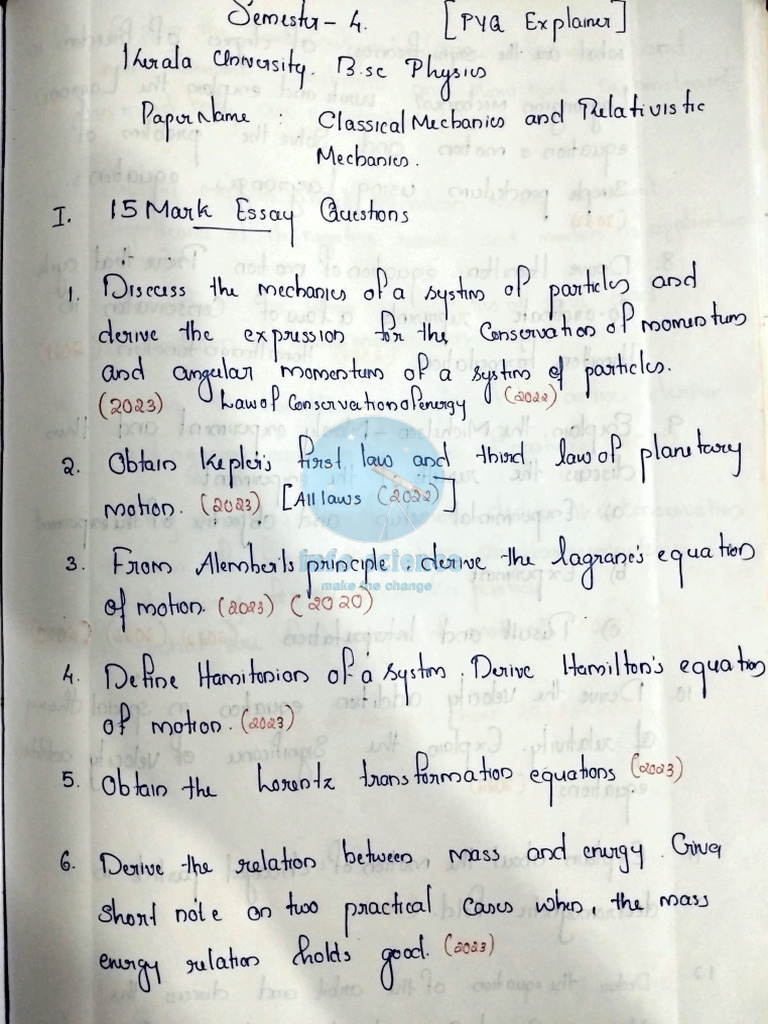 Semester - 4. [PYQ Explainer]
Kerala University. B.sc Physics
Paper Name : Classical Mechanics and Relativistic
Mechanics.
I. 15 Mark Essay Questions
1. Discuss the mechanics of a systm of particles and
derive the expression for the Conservation of momentum
and angular momentum of a systm of particles.
(2023) Law of Conservation of energy (2022)
2. Obtain Kepler's first law and third law of planetary
motion. (2023) [All laws (2022)]
info science
3. From Alembert's principle, derive the lagrane's equation
make the change
of motion. (2023) (2020)
4. Define Hamitonian of a systm. Derive Hamilton's equation
of motion. (2023)
5. Obtain the Lorentz transformation equations (2023)
6. Derive the relation between mass and energy. Give
short note on two practical cases when, the mass
energy relation holds good. (2023)